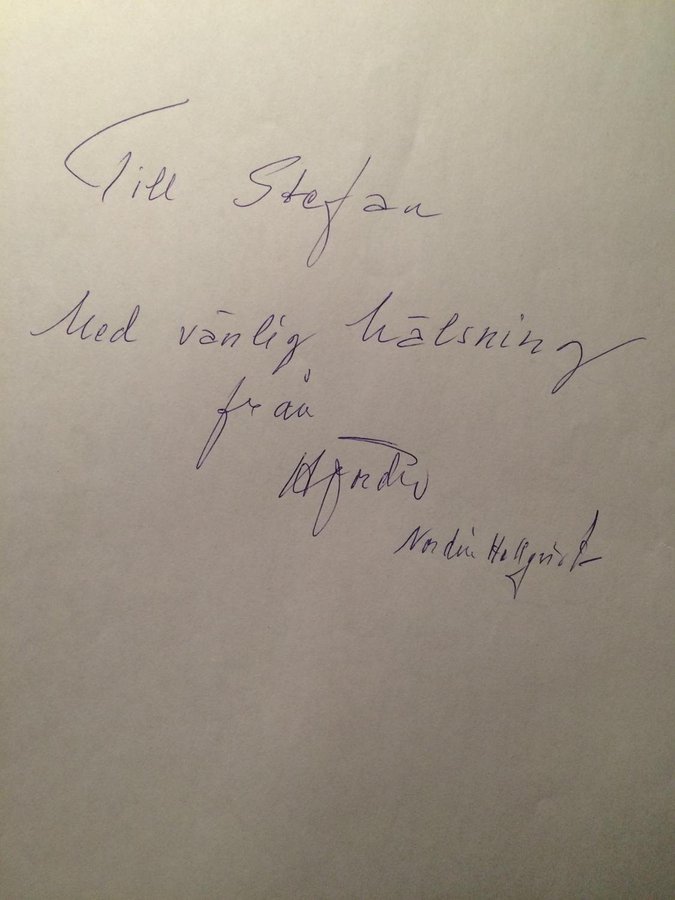 Till Stefan
Med vänlig hälsning
från
Nordin Hallqvist